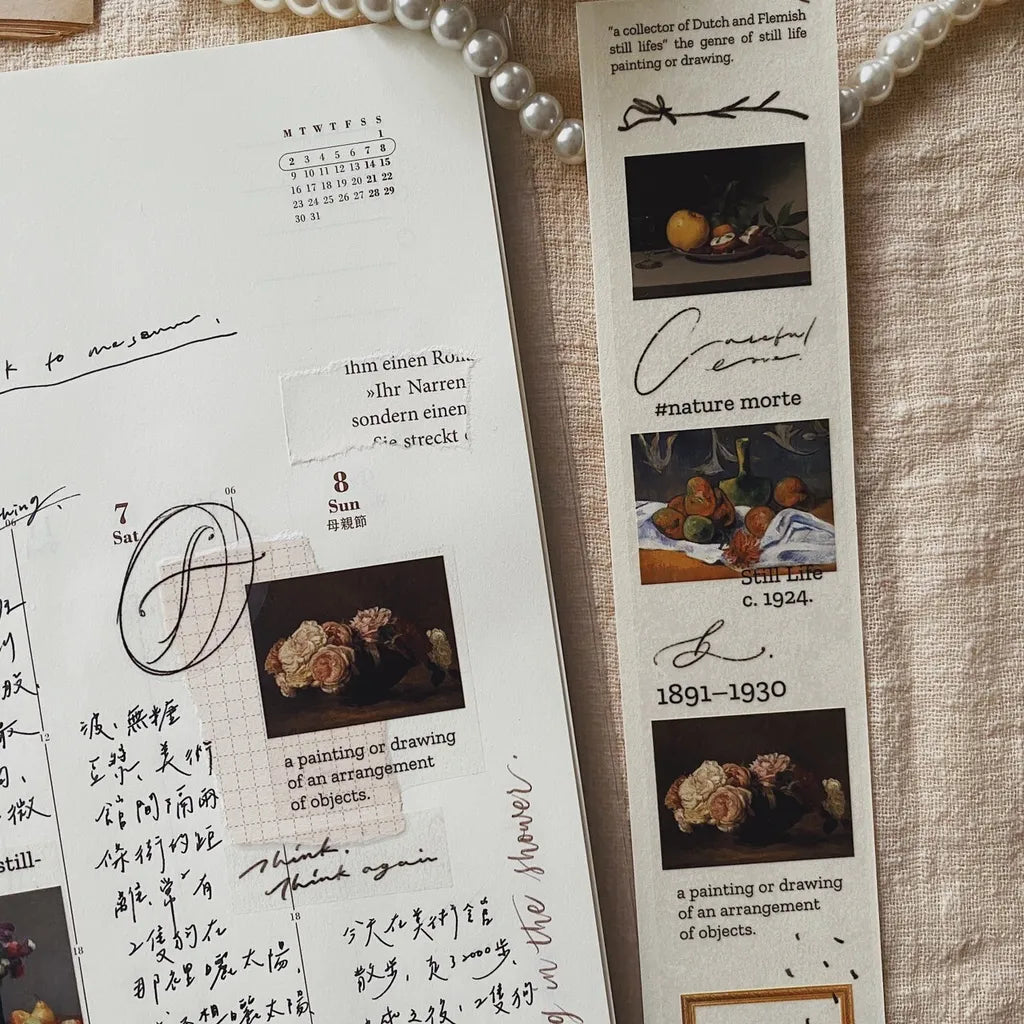 M T W T F S S
1
2 3 4 5 6 7 8
9 10 11 12 13 14 15
16 17 18 19 20 21 22
23 24 25 26 27 28 29
30 31
to museum.
ihm einen Rom
»Ihr Narren
sondern einen
Sie streckt
7
Sat
06
8
Sun
母親節
a painting or drawing
of an arrangement
of objects.
think.
think again
12
18
波、無糖
豆漿、美術
館間隔兩
條街的距
離、常有
2隻狗在
那裡曬太陽,
曬太陽
18
今天在美術館
散步,走了2000步,
之後,2隻狗
in the shower.
still-
"a collector of Dutch and Flemish
still lifes" the genre of still life
painting or drawing.
Careful
#nature morte
Still Life
c. 1924.
1891–1930
a painting or drawing
of an arrangement
of objects.